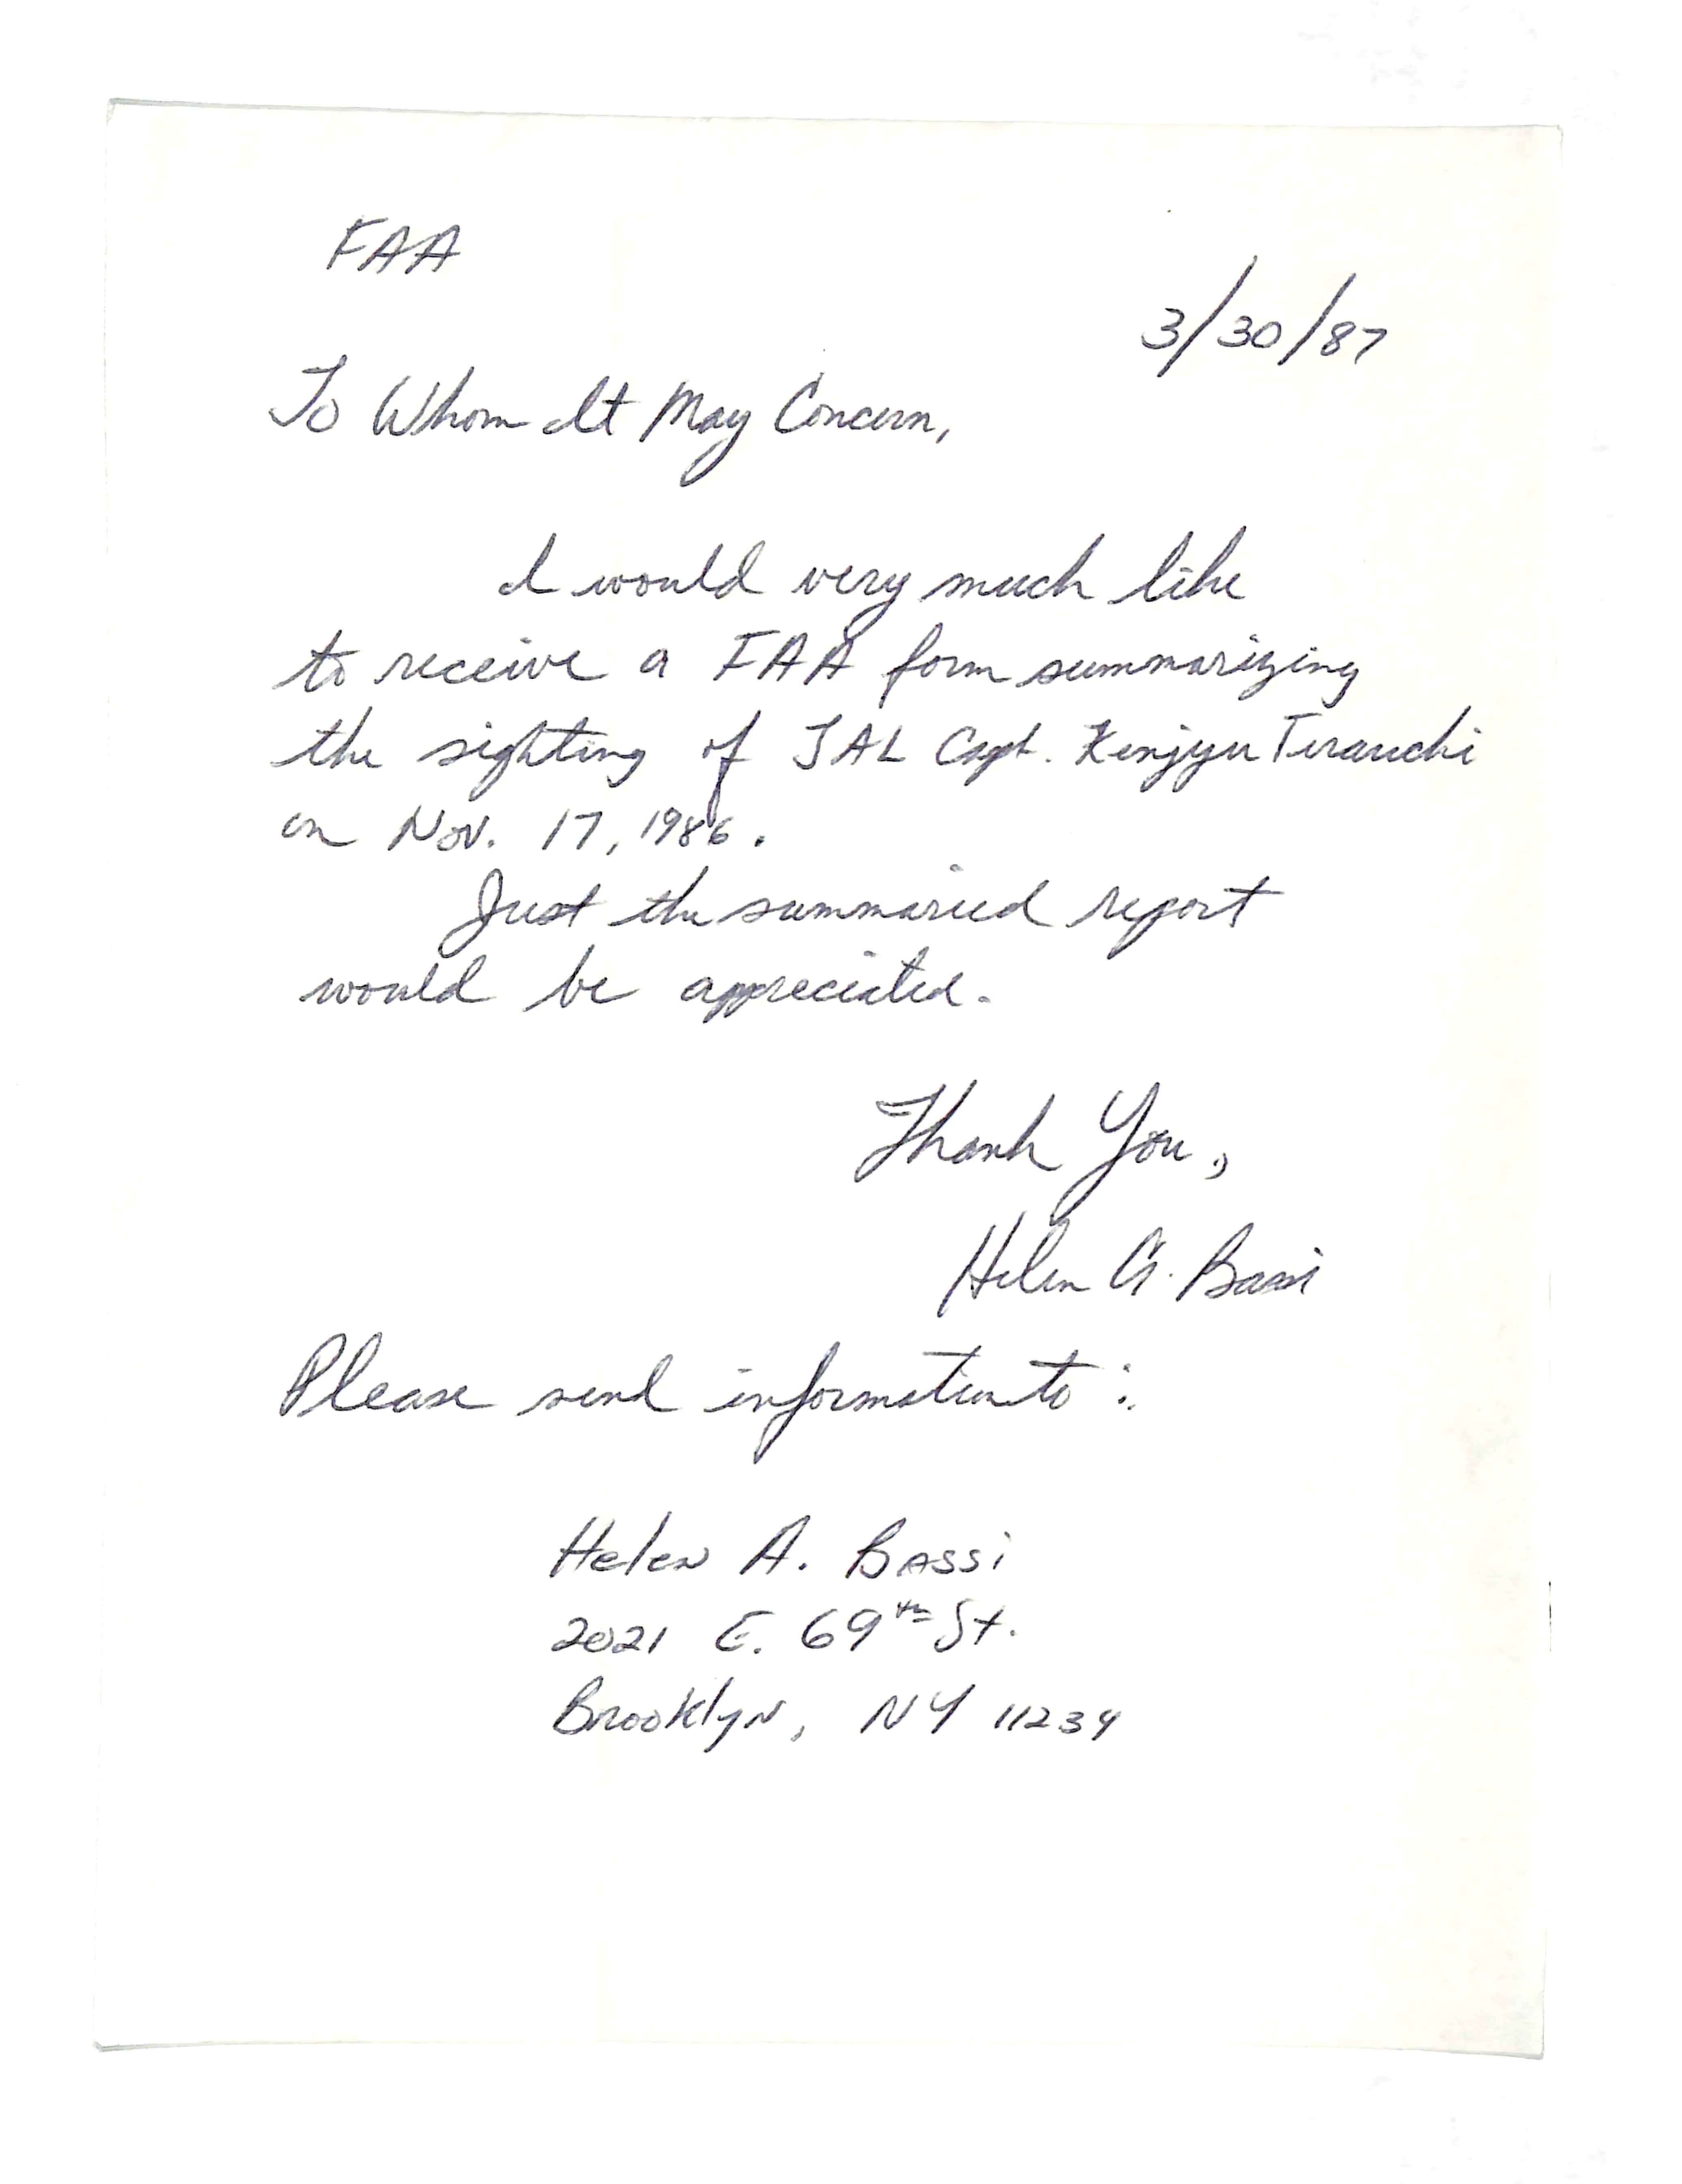 FAA
3/30/87
To Whom It May Concern,
I would very much like
to receive a FAA form summarizing
the sighting of JAL Capt. Kenjyu Terauchi
on Nov. 17, 1986.
Just the summaried report
would be appreciated.
Thank You,
Helen A. Bassi
Please send information to :
Helen A. Bassi
2021 E. 69th St.
Brooklyn, NY 11234